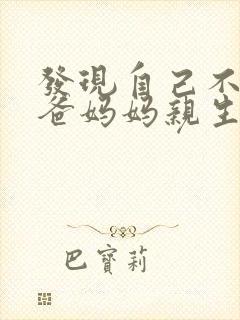 發現自己不
爸媽媽親生
巴寶莉